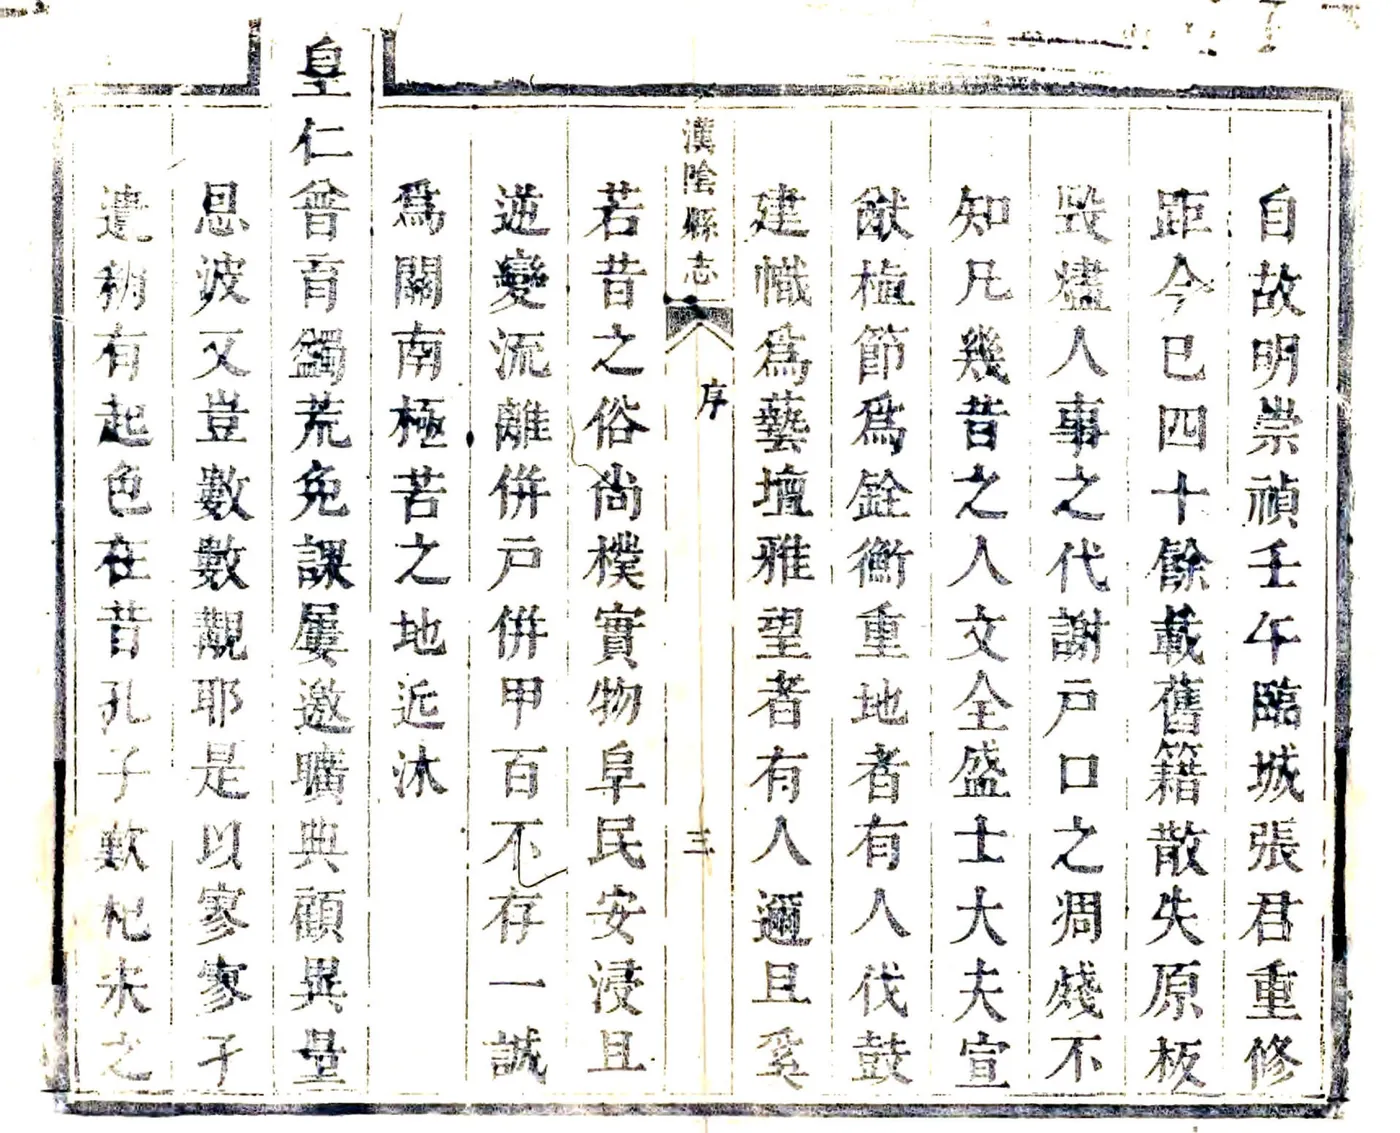 自故明崇禎壬午臨城張君重修
距今已四十餘載舊籍散失原板
毀燼人事之代謝戶口之凋殘不
知凡幾昔之人文全盛士大夫宣
猷植節為銓衡重地者有人伐鼓
建幟為藝壇雅望者有人邇且奚
漢陰縣志
序
三
若昔之俗尚樸實物阜民安浸且
逆變流離併戸併甲百不存一誠
為關南極苦之地近沐
皇仁曾育蠲荒免課屢邀曠典顧異量
恩波又豈數數覯耶是以寥寥孑
遺稍有起色在昔孔子歎杞宋之